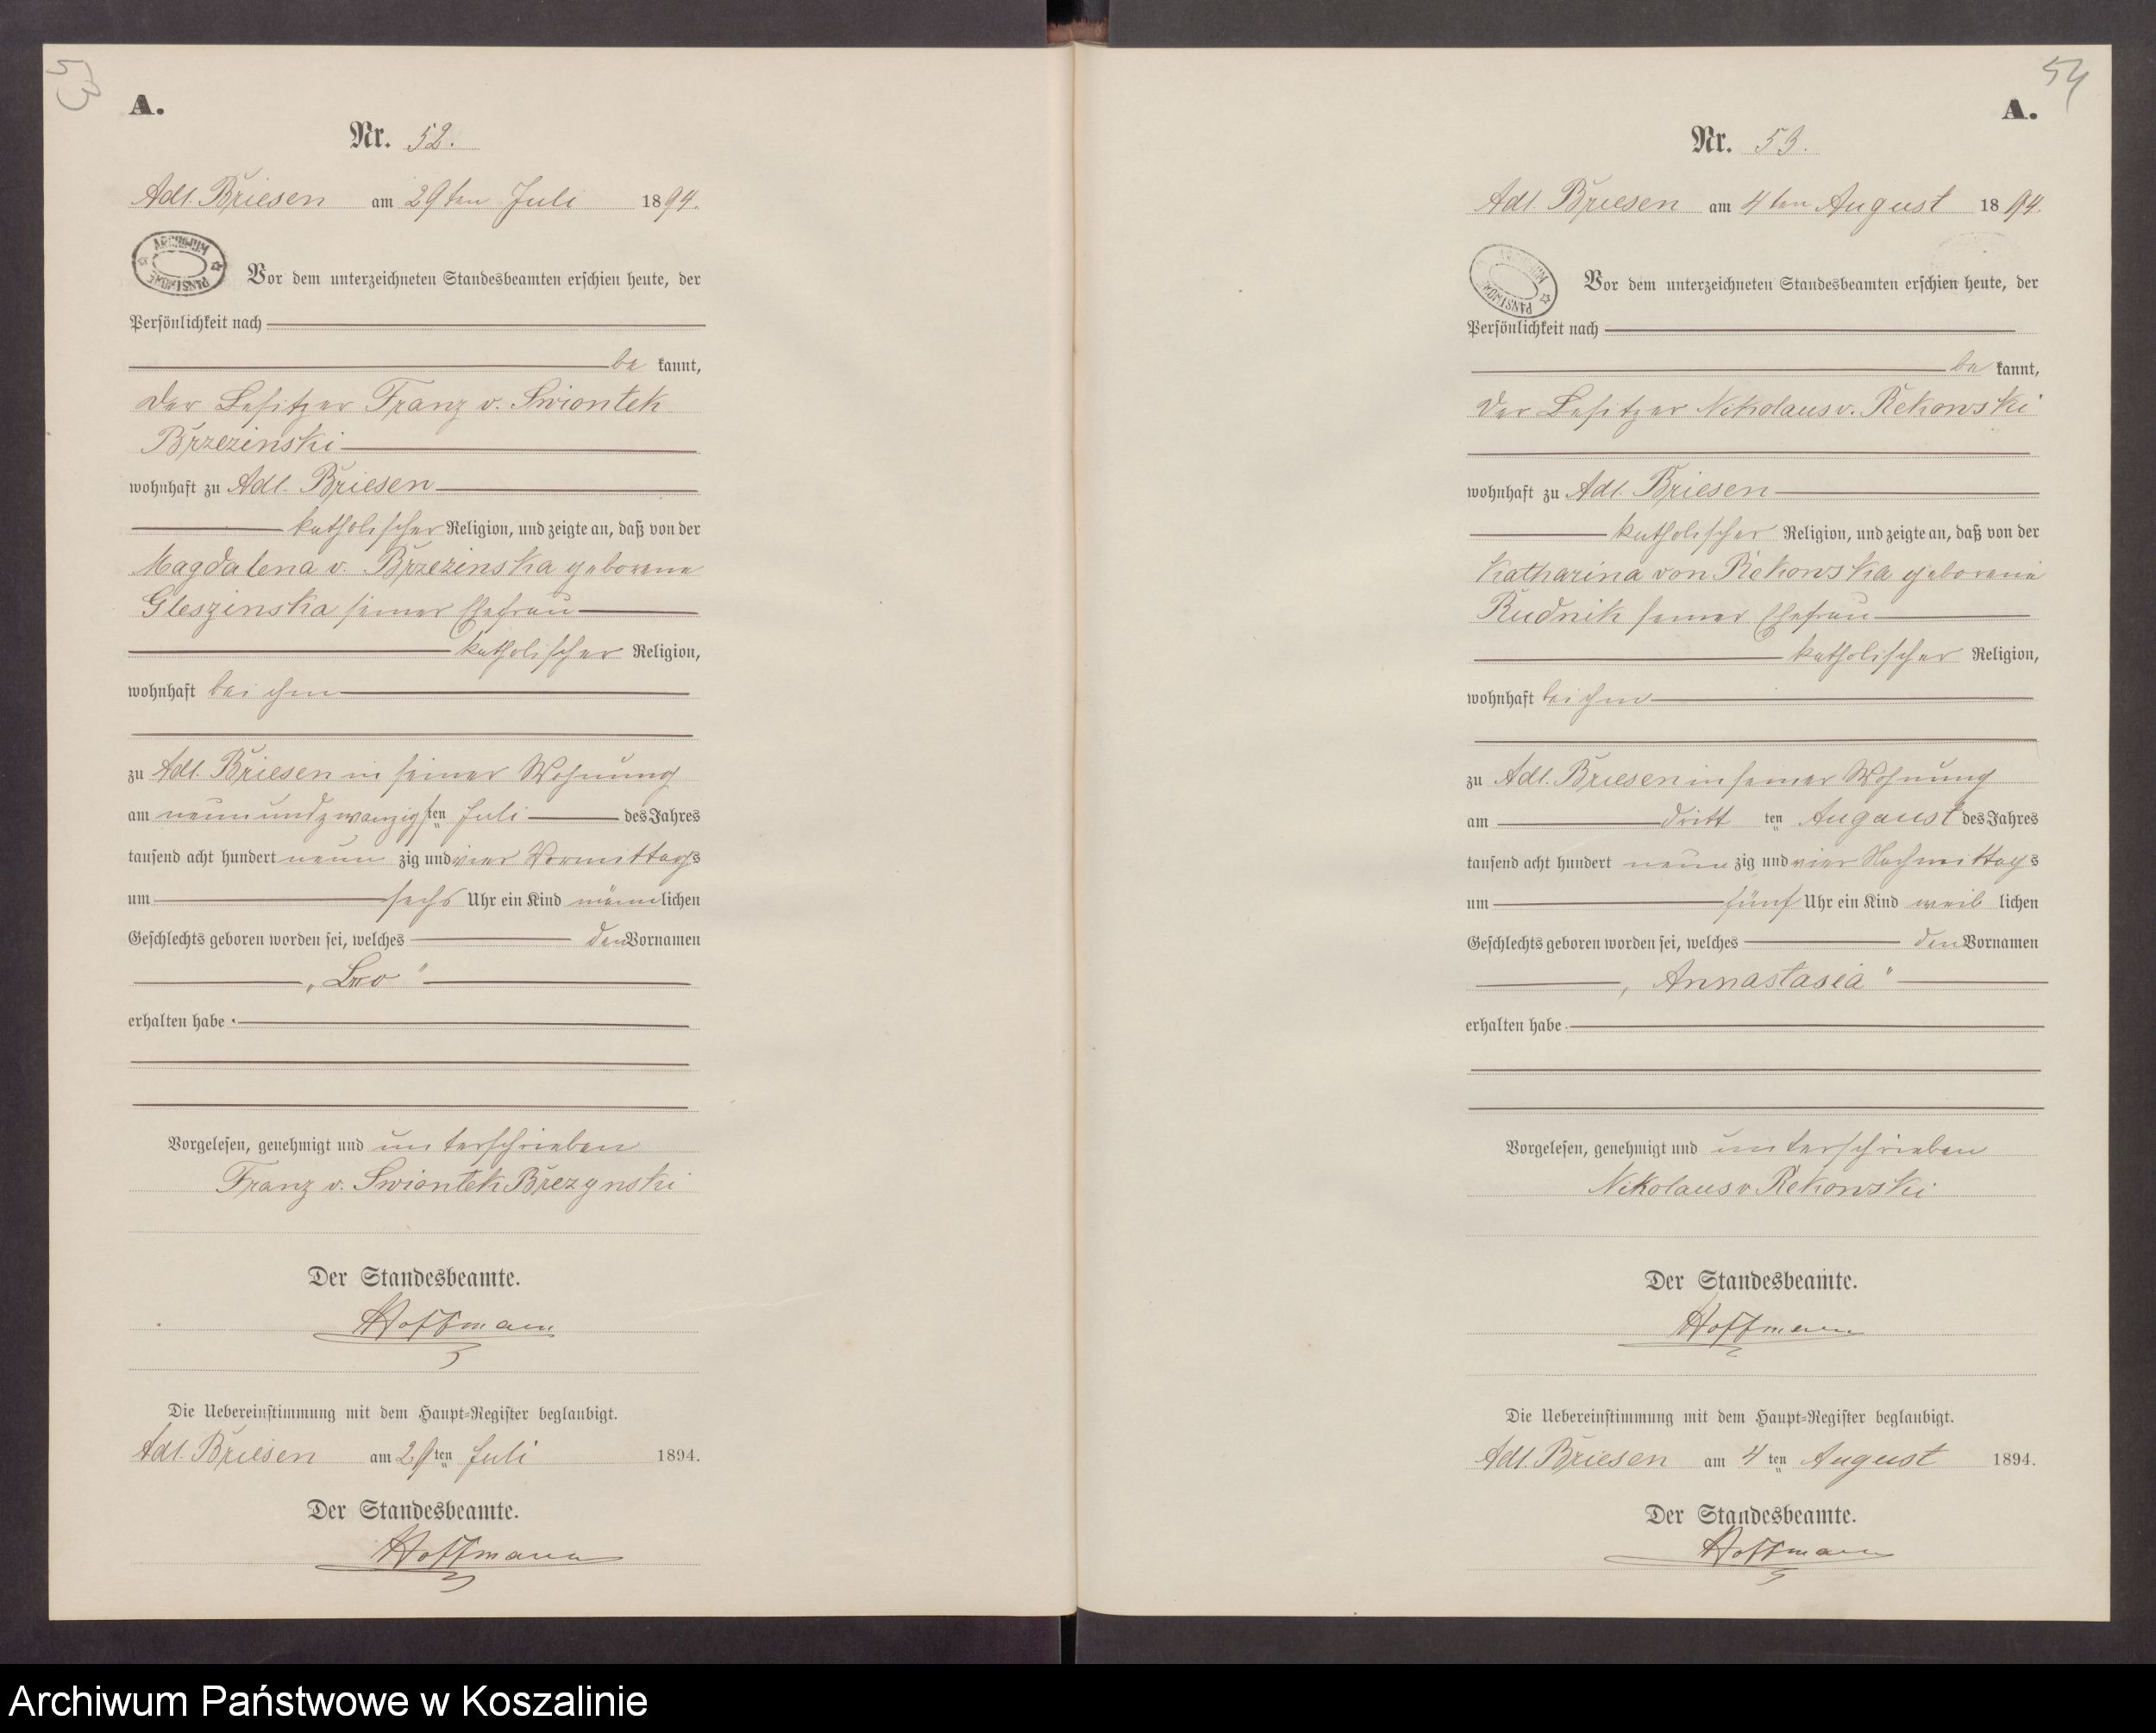 53
A.
Nr. 52.
Adl. Briesen am 29ten Juli 1894.
ARCHIWUM PAŃSTWOWE
Vor dem unterzeichneten Standesbeamten erschien heute, der
Persönlichkeit nach
be kannt,
der Besitzer Franz v. Swiontek
Brzezinski
wohnhaft zu Adl. Briesen
katholischer Religion, und zeigte an, daß von der
Magdalena v. Brzezinska geborene
Gleszinska seiner Ehefrau
katholischer Religion,
wohnhaft bei ihm
zu Adl. Briesen in seiner Wohnung
am neunundzwanzigsten Juli des Jahres
tausend acht hundert neun zig und vier Vormittags
um sechs Uhr ein Kind männlichen
Geschlechts geboren worden sei, welches den Vornamen
„Leo"
erhalten habe.
Vorgelesen, genehmigt und unterschrieben
Franz v. Swiontek Brezynski
Der Standesbeamte.
Hoffmann
Die Uebereinstimmung mit dem Haupt-Register beglaubigt.
Adl. Briesen am 29ten Juli 1894.
Der Standesbeamte.
Hoffmann
54
A.
Nr. 53.
Adl. Briesen am 4ten August 1894.
ARCHIWUM PAŃSTWOWE
Vor dem unterzeichneten Standesbeamten erschien heute, der
Persönlichkeit nach
be kannt,
der Besitzer Nikolaus v. Rekowski
wohnhaft zu Adl. Briesen
katholischer Religion, und zeigte an, daß von der
Katharina von Rekowska geborene
Rudnik seiner Ehefrau
katholischer Religion,
wohnhaft bei ihm
zu Adl. Briesen in seiner Wohnung
am dritt ten Augaust des Jahres
tausend acht hundert neun zig und vier Nachmittags
um fünf Uhr ein Kind weib lichen
Geschlechts geboren worden sei, welches den Vornamen
„Annastasia"
erhalten habe.
Vorgelesen, genehmigt und unterschrieben
Nikolaus v Rekowski
Der Standesbeamte.
Hoffmann
Die Uebereinstimmung mit dem Haupt-Register beglaubigt.
Adl. Briesen am 4ten August 1894.
Der Standesbeamte.
Hoffmann
Archiwum Państwowe w Koszalinie